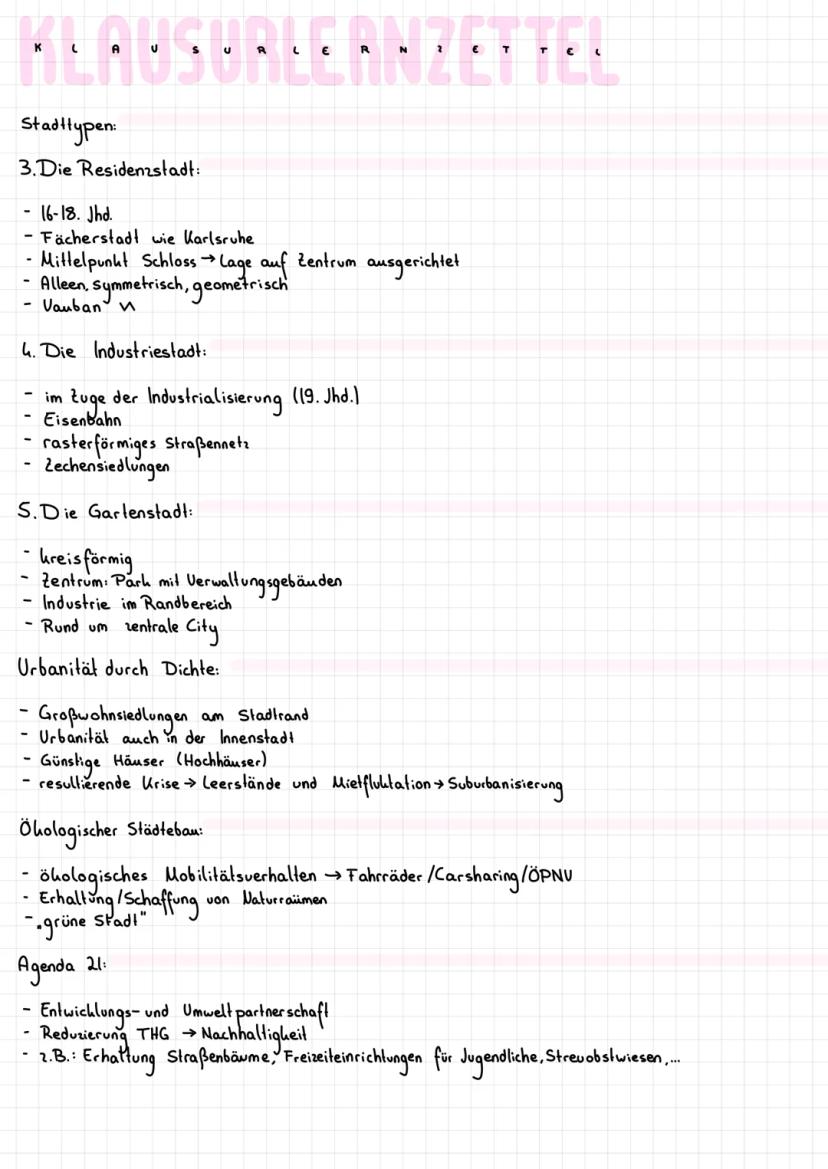 KLAUSURLERNZETTEL
KLAUSURLERNZETTEL
Stadttypen:
3. Die Residenzstadt:
- 16-18. Jhd.
- Fächerstadt wie Karlsruhe
- Mittelpunkt Schloss → Lage auf Zentrum ausgerichtet
- Alleen, symmetrisch, geometrisch
- Vauban
4. Die Industriestadt:
- im Zuge der Industrialisierung (19. Jhd.)
- Eisenbahn
- rasterförmiges Straßennetz
- Zechensiedlungen
5. Die Gartenstadt:
- kreisförmig
- Zentrum: Park mit Verwaltungsgebäuden
- Industrie im Randbereich
- Rund um zentrale City
Urbanität durch Dichte:
- Großwohnsiedlungen am Stadtrand
- Urbanität auch in der Innenstadt
- Günstige Häuser (Hochhäuser)
- resultierende Krise → Leerstände und Mietfluktation → Suburbanisierung
Ökologischer Städtebau:
- ökologisches Mobilitätsverhalten → Fahrräder/Carsharing/ÖPNV
- Erhaltung/Schaffung von Naturräumen
- „grüne Stadt"
Agenda 21:
- Entwicklungs- und Umweltpartnerschaft
- Reduzierung THG → Nachhaltigkeit
- z.B.: Erhaltung Straßenbäume, Freizeiteinrichtungen für Jugendliche, Streuobstwiesen,...